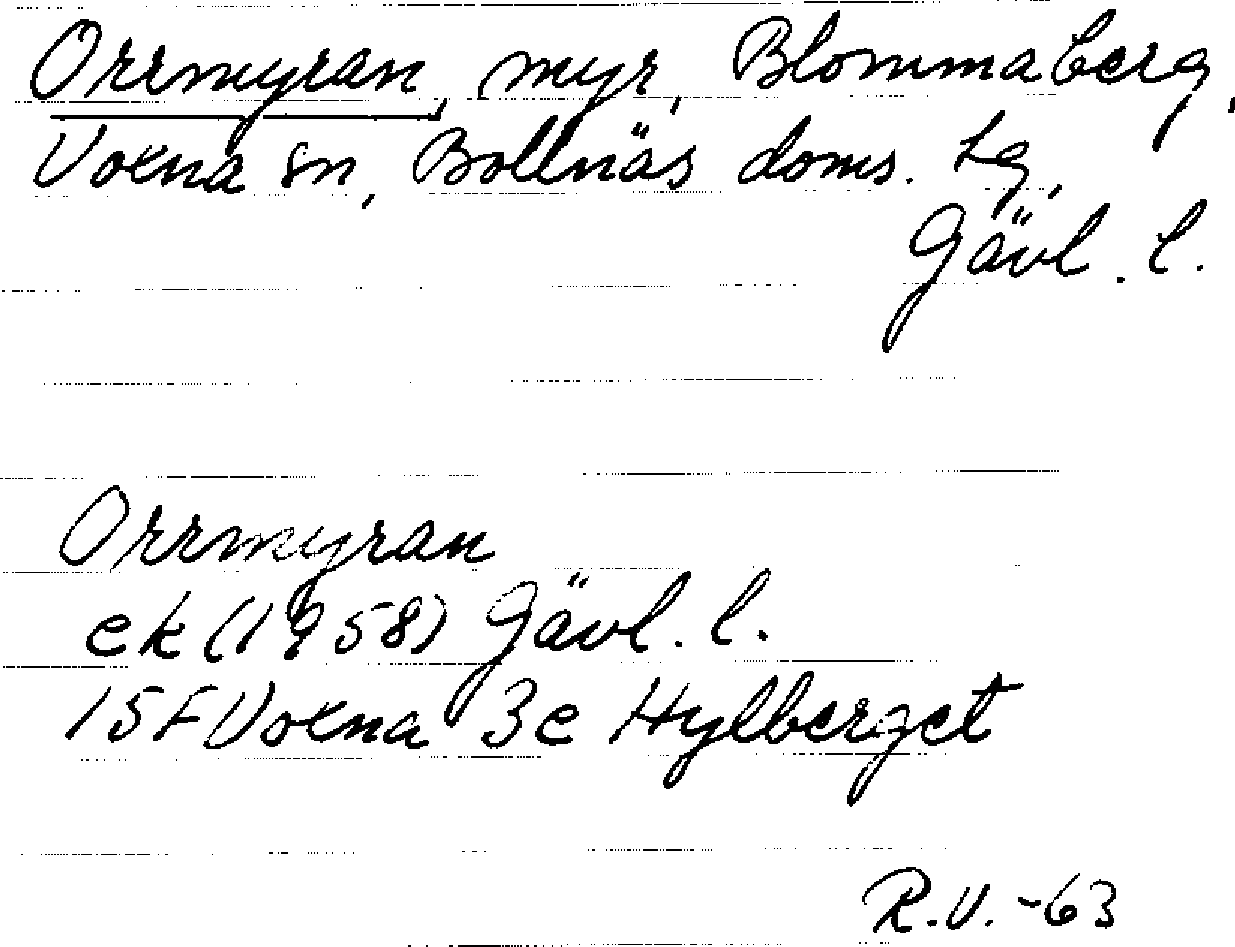 Orrmyran, myr, Blommaberg,
Voxna sn, Bollnäs doms. tg,
Gävl. l.
Orrmyran
ek (1958) Gävl. l.
15F Voxna 3e Hylberget
R.V. -63